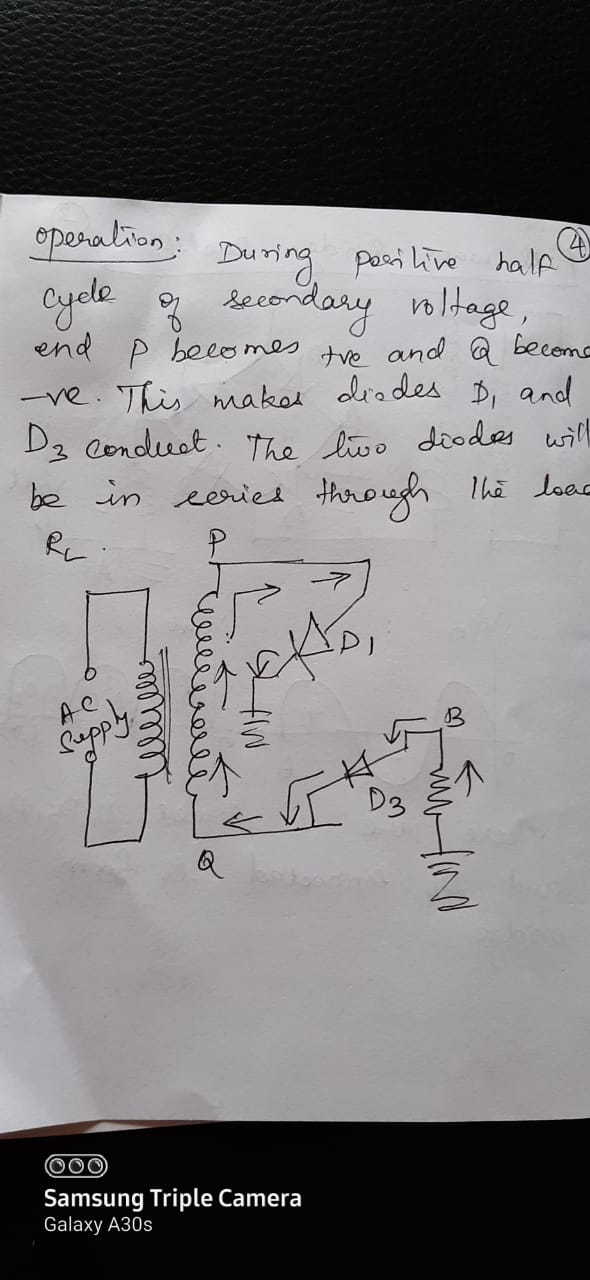 ④
operation: During positive half
cycle of secondary voltage,
end P becomes +ve and Q become
-ve. This makes diodes D₁ and
D₃ conduct. The two diodes will
be in series through the load
R_L.
P
D₁
AC
Supply
B
D₃
Q
Samsung Triple Camera
Galaxy A30s